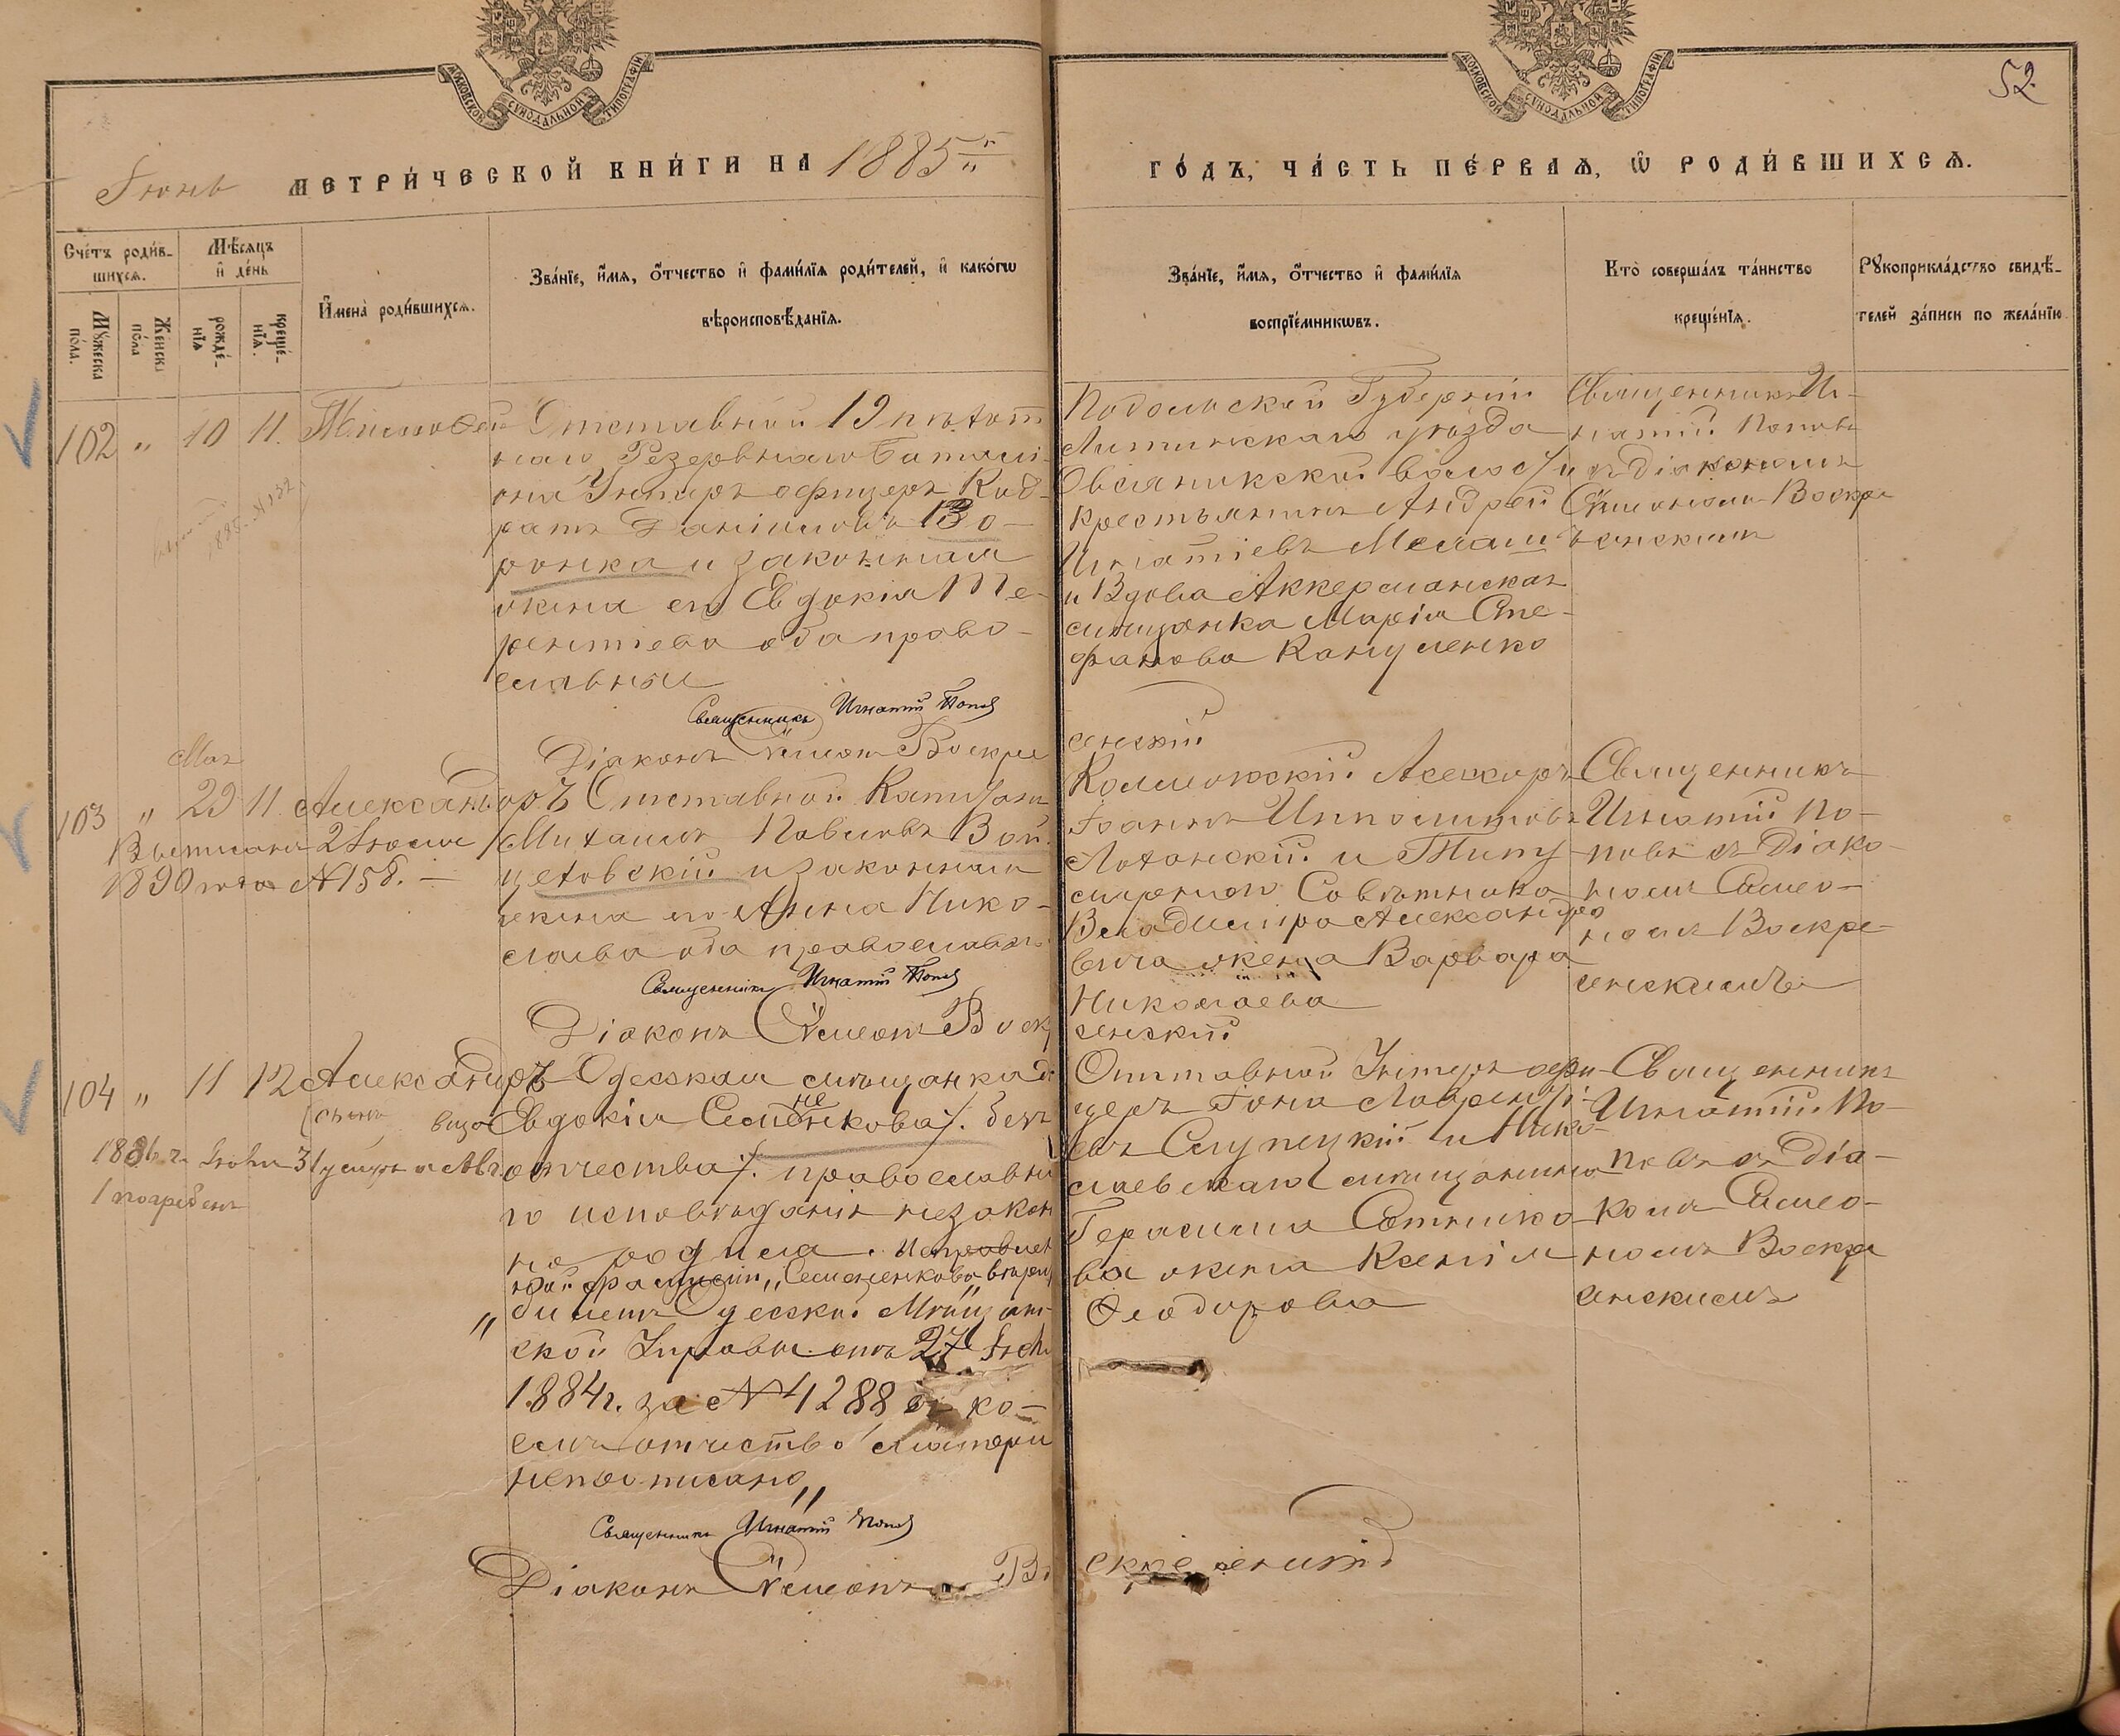 МОСКОВСКОЙ СУНОДАЛЬНОЙ ТИПОГРАФІИ
МОСКОВСКОЙ СУНОДАЛЬНОЙ ТИПОГРАФІИ
52.
Іюнь МЕТРИ́ЧЕСКОЙ КНИ́ГИ НА 1885й
ГО́ДЪ, ЧА́СТЬ ПЕ́РВАѦ, Ѡ҆ РОДИ́ВШИХСѦ.
Сче́тъ роди́в-
шихсѧ.
Мѣ́сѧцъ
и҆ де́нь
Мꙋ́жеска
по́ла.
Же́нска
по́ла
рожде́-
нїѧ
креще́-
нїѧ.
И҆мена̀ роди́вшихсѧ.
Зва́нїе, и҆́мѧ, ѻ҆́тчество и҆ фамилїѧ роди́телей, и҆ како́гѡ
вѣроисповѣ́данїѧ.
Зва́нїе, и҆́мѧ, ѻ҆́тчество и҆ фами́лїѧ
воспрїе́мникѡвъ.
Кто̀ соверша́лъ та́инство
креще́нїѧ.
Рꙋкоприкла́дство свидѣ́-
телей за́писи по жела́нїю
102 „ 10 11.
Отставной 19 пѣхот
наго Резервнаго Баталі-
она Унтеръ офицеръ Код-
ратъ Даніиловъ Во-
ронка и законная
жена его Евдокія Те-
рентіева оба право-
славные
Священникъ Игнатій Попов
Діаконъ Симеонъ Воскре
сенскій
Подольской Губерніи
Литинскаго уѣзда
волости
Крестьянинъ Андрей
Игнатіевъ
и Вдова Аккерманская
мѣщанка Марія Сте-
фанова
Священникъ Иг-
натій Поповъ
съ діакономъ
Симеономъ Воскре
сенскимъ
1885 №132
Мая
103 „ 29 11 Александръ
Выписанъ 2 Іюля
1890 года №158. —
Отставной Капитанъ
Михаилъ Павловъ Вой-
цеховскій и законная
жена его Анна Нико-
лаева оба православн.
Священникъ Игнатій Попов
Діаконъ Симеонъ Воск
сенскій
Коллежскій Асессоръ
Іоаннъ Ипполитовъ
Лохонскій и Титу-
лярнаго Совѣтника
Владимира Александро
вича жена Варвара
Николаева
Священникъ
Игнатій По-
повъ съ Діако-
номъ Симео-
номъ Воскре-
сенскимъ
104 „ 11 12 Александръ
31 умеръ
1 погребенъ
Одесская мѣщанка
Евдокія /безъ
отчества/ православна
го исповѣданія незакон
но родила. Исправлен
ной фамиліи „Семененкова вѣрить
„билетъ Одесской Мѣщан-
ской Управы отъ 27 Іюн
1884г. за №4288 въ ко-
емъ отчество матери
непрописано„
Священникъ Игнатій Попов
Діаконъ Симеонъ Во
скресенскій
Отставной Унтеръ офи-
церъ Іона Лаврентi-
евъ Слупецкій и Нико-
лаевскаго мѣщанина
Герасима Сотнико-
ва жена Ксенія
Ѳеодорова
Священникъ
Игнатій По-
повъ съ Діа-
кономъ Симео-
номъ Воскре
сенскимъ